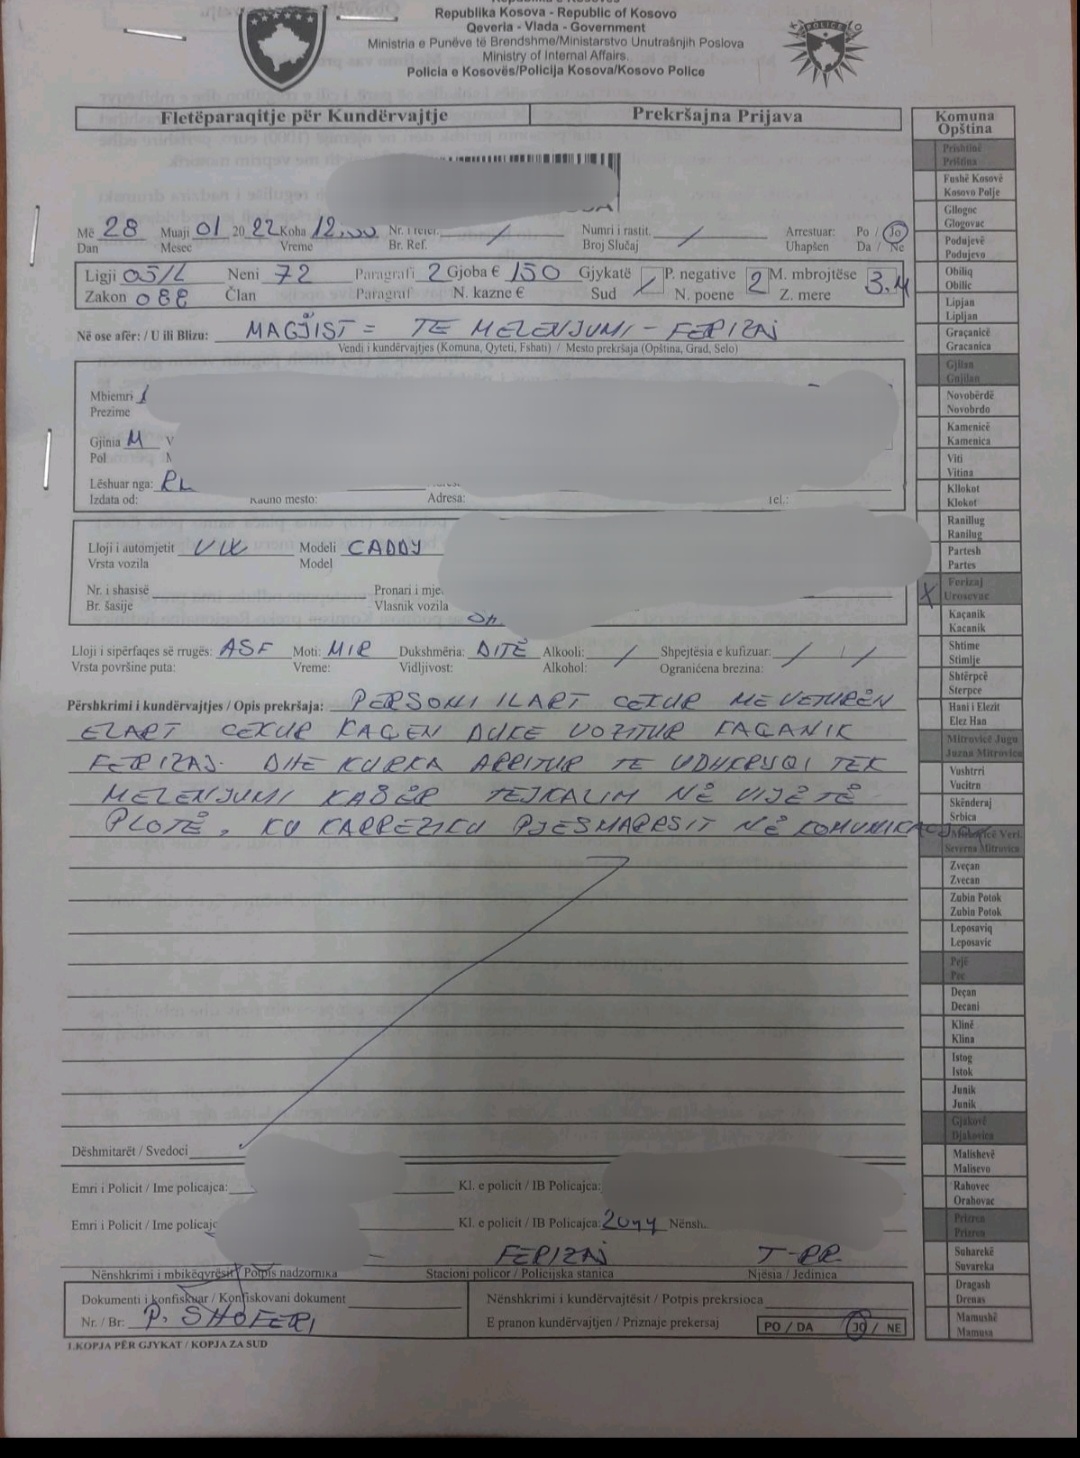 Republika Kosova - Republic of Kosovo
Qeveria - Vlada - Government
Ministria e Punëve të Brendshme/Ministarstvo Unutrašnjih Poslova
Ministry of Internal Affairs.
Policia e Kosovës/Policija Kosova/Kosovo Police
POLICE
Fletëparaqitje për Kundërvajtje Prekršajna Prijava
Më 28 Muaji 01 20 22 Koba 12,00 Nr. i refer. / Numri i rastit / Arrestuar: Po / Jo
Dan Mesec Vreme Br. Ref. Broj Slučaj Uhapšen Da / Ne
Ligji 05/L Neni 72 Paragrafi 2 Gjoba € 150 Gjykatë / P. negative 2 M. mbrojtëse 3.M
Zakon 088 Član Paragraf N. kazne € Sud N. poene Z. mere
Në ose afër: / U ili Blizu: MAGJIST = TE MELENJUMI - FERIZAJ
Vendi i kundërvajtjes (Komuna, Qyteti, Fshati) / Mesto prekršaja (Opština, Grad, Selo)
Mbiemri
Prezime
Gjinia M
Pol
Lëshuar nga:
Izdata od: Radno mesto: Adresa: Tel.:
Lloji i automjetit VW Modeli CADDY
Vrsta vozila Model
Nr. i shasisë Pronari i mje.
Br. šasije Vlasnik vozila
Lloji i sipërfaqes së rrugës: ASF Moti: MIR Dukshmëria: DITË Alkooli: / Shpejtësia e kufizuar: / /
Vrsta površine puta: Vreme: Vidljivost: Alkohol: Ograničena brezina:
Përshkrimi i kundërvajtjes / Opis prekršaja: PERSONI ILART CEKUR ME VETURËN
ELART CEKUR KAQEN DUKE VOZITUR KAÇANIK
FERIZAJ. DHE KURKA ARRITUR TE UDHKRYQI TEK
MELENJUMI KABËR TEJKALIM NË VIJË TË
PLOTË, KU KARREZIKU PJESMARRSIT NË KOMUNIKACION
Dëshmitarët / Svedoci
Emri i Policit / Ime policajca: Kl. e policit / IB Policajca:
Emri i Policit / Ime policajc Kl. e policit / IB Policajca: Nënsh.
FERIZAJ T-RR
Nënshkrimi i mbikëqyrësit / Potpis nadzornika Stacioni policor / Policijska stanica Njësia / Jedinica
Dokumenti i konfiskuar / Konfiskovani dokument Nënshkrimi i kundërvajtësit / Potpis prekrsioca
Nr. / Br: P. SHOFERI E pranon kundërvajtjen / Priznaje prekersaj PO / DA JO / NE
1.KOPJA PËR GJYKAT / KOPJA ZA SUD
Komuna
Opština
Prishtinë
Priština
Fushë Kosovë
Kosovo Polje
Gllogoc
Glogovac
Podujevë
Podujevo
Obiliq
Obilic
Lipjan
Lipljan
Graçanicë
Gracanica
Gjilan
Gnjilan
Novobërdë
Novobrdo
Kamenicë
Kamenica
Viti
Vitina
Kllokot
Klokot
Ranillug
Ranilug
Partesh
Partes
X Ferizaj
Urosevac
Kaçanik
Kacanik
Shtime
Stimlje
Shtërpcë
Sterpce
Hani i Elezit
Elez Han
Mitrovicë Jugu
Juzna Mitrovica
Vushtrri
Vucitrn
Skënderaj
Srbica
Mitrovicë Veri.
Severna Mitrovica
Zveçan
Zvecan
Zubin Potok
Zubin Potok
Leposaviq
Leposavic
Pejë
Pec
Deçan
Decani
Klinë
Klina
Istog
Istok
Junik
Junik
Gjakovë
Djakovica
Malishevë
Malisevo
Rahovec
Orahovac
Prizren
Prizren
Suharekë
Suvareka
Dragash
Drenas
Mamushë
Mamusa